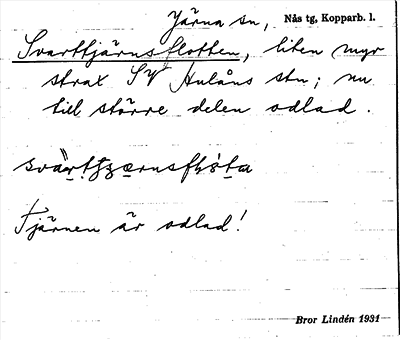 Järna sn, Nås tg, Kopparb. l.
Svarttjärnsflotten, liten myr
strax SV Hulåns stn; nu
till större delen odlad.
Tjärnen är odlad!
Bror Lindén 1931